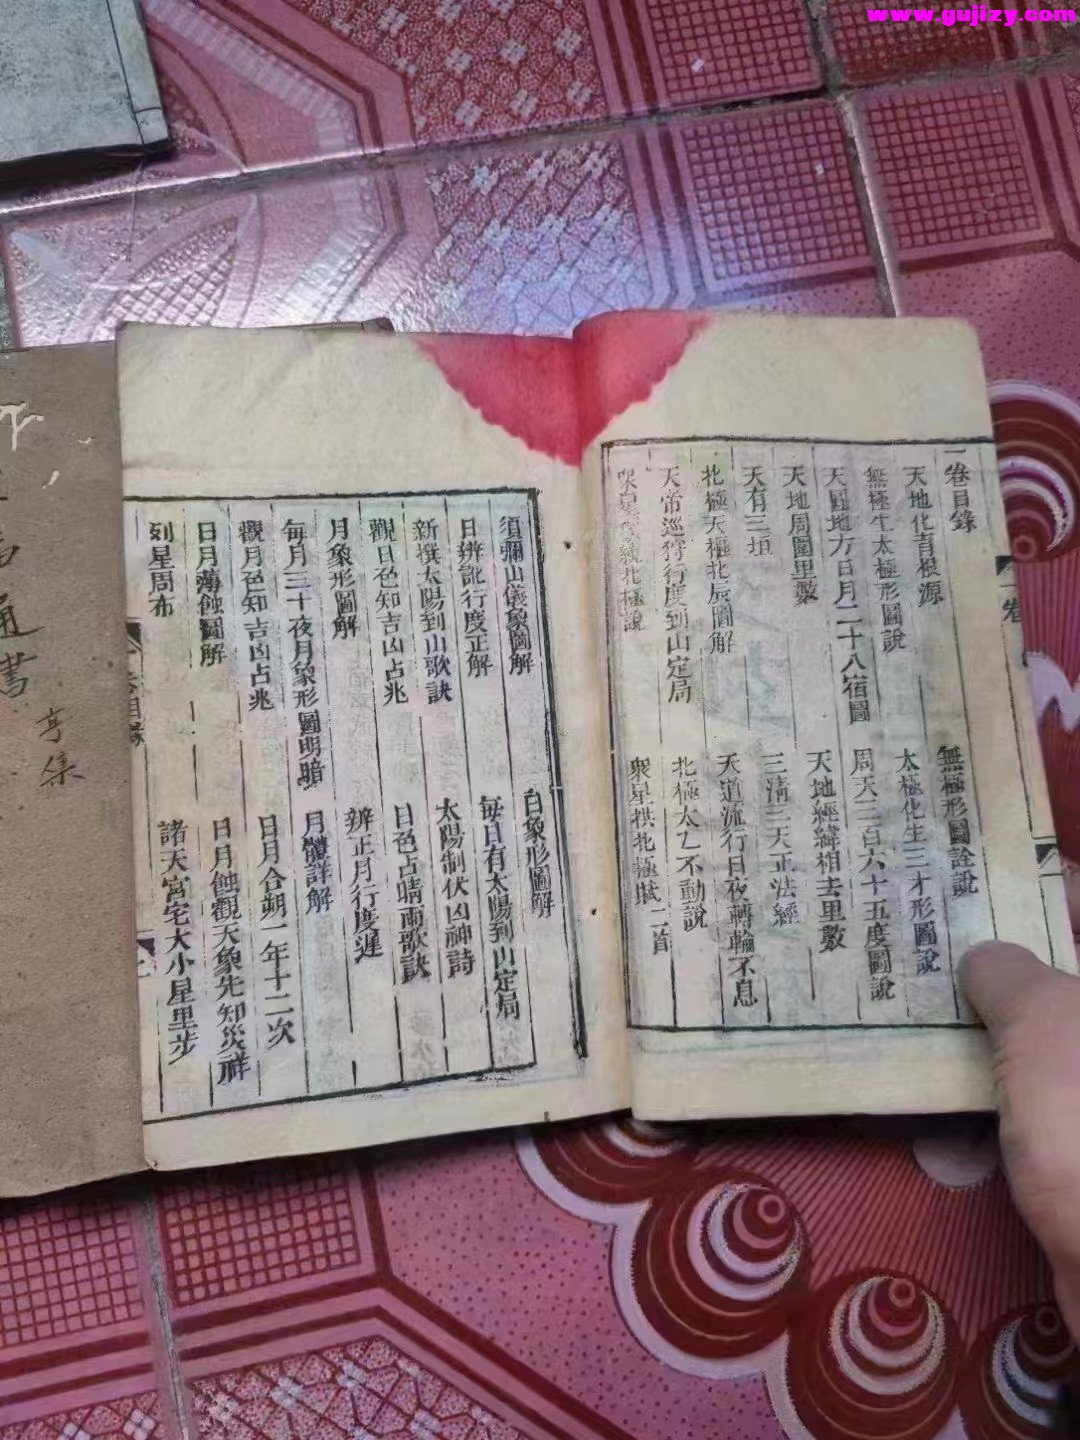 www.gujizy.com
一卷目錄
無極形圖詮說
天地化育根源
太極化生三才形圖說
無極生太極形圖說
周天三百六十五度圖說
天圓地方日月二十八宿圖
天地經緯相去里數
天地周圍里數
三淸三天正法經
天有三垣
天道流行日夜轉輪不息
北極天樞北辰圖解
北極太乙不動說
天帝巡狩行度到山定局
衆星拱北極賦二首
北極說
一卷
須彌山儀象圖解
日象形圖解
日辨訛行度正解
每日有太陽到山定局
新撰太陽到山歌訣
太陽制伏凶神詩
觀日色知吉凶占兆
日色占晴雨歌訣
月象形圖解
辨正月行度遲
每月三十夜月象形圖明暗
月體詳解
觀月色知吉凶占兆
日月合朔一年十二次
日月薄蝕圖解
日月蝕觀天象先知災祥
列星周布
諸天宮宅大小星里步
目錄
通書
亨集